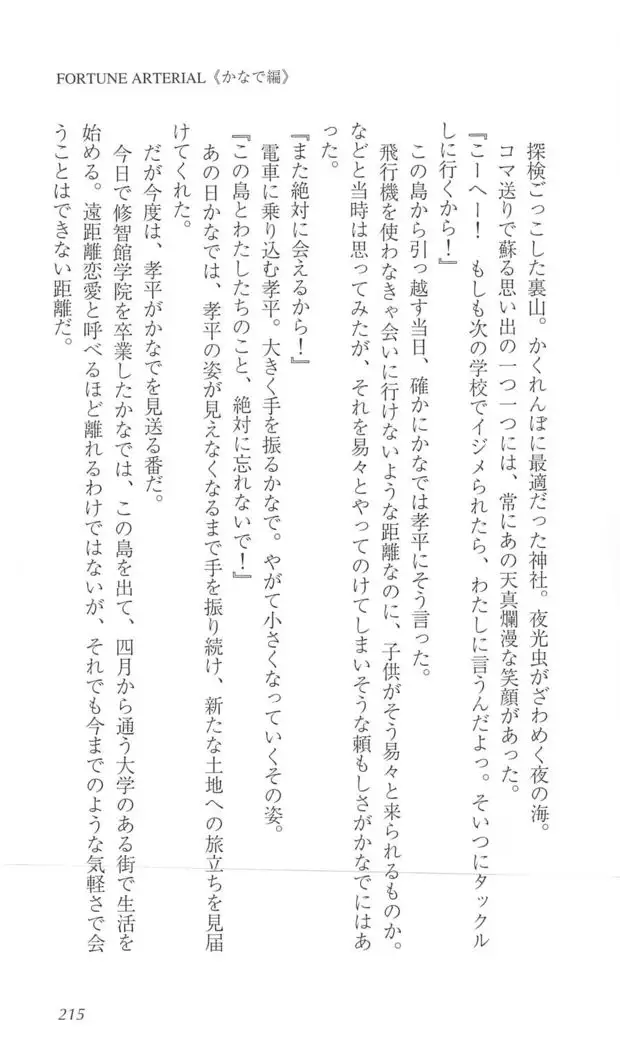 FORTUNE ARTERIAL《かなで編》
探検ごっこした裏山。かくれんぼに最適だった神社。夜光虫がざわめく夜の海。
コマ送りで蘇る思い出の一つ一つには、常にあの天真爛漫な笑顔があった。
『こーへー！　もしも次の学校でイジメられたら、わたしに言うんだよっ。そいつにタックル
しに行くから！』
この島から引っ越す当日、確かにかなでは孝平にそう言った。
飛行機を使わなきゃ会いに行けないような距離なのに、子供がそう易々と来られるものか。
などと当時は思ってみたが、それを易々とやってのけてしまいそうな頼もしさがかなでにはあ
った。
『また絶対に会えるから！』
電車に乗り込む孝平。大きく手を振るかなで。やがて小さくなっていくその姿。
『この島とわたしたちのこと、絶対に忘れないで！』
あの日かなでは、孝平の姿が見えなくなるまで手を振り続け、新たな土地への旅立ちを見届
けてくれた。
だが今度は、孝平がかなでを見送る番だ。
今日で修智館学院を卒業したかなでは、この島を出て、四月から通う大学のある街で生活を
始める。遠距離恋愛と呼べるほど離れるわけではないが、それでも今までのような気軽さで会
うことはできない距離だ。
215